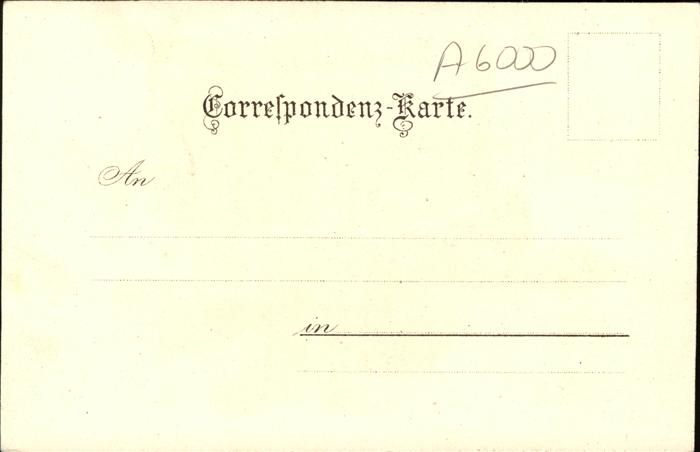 A6000
Correſpondenz-Karte.
An
in